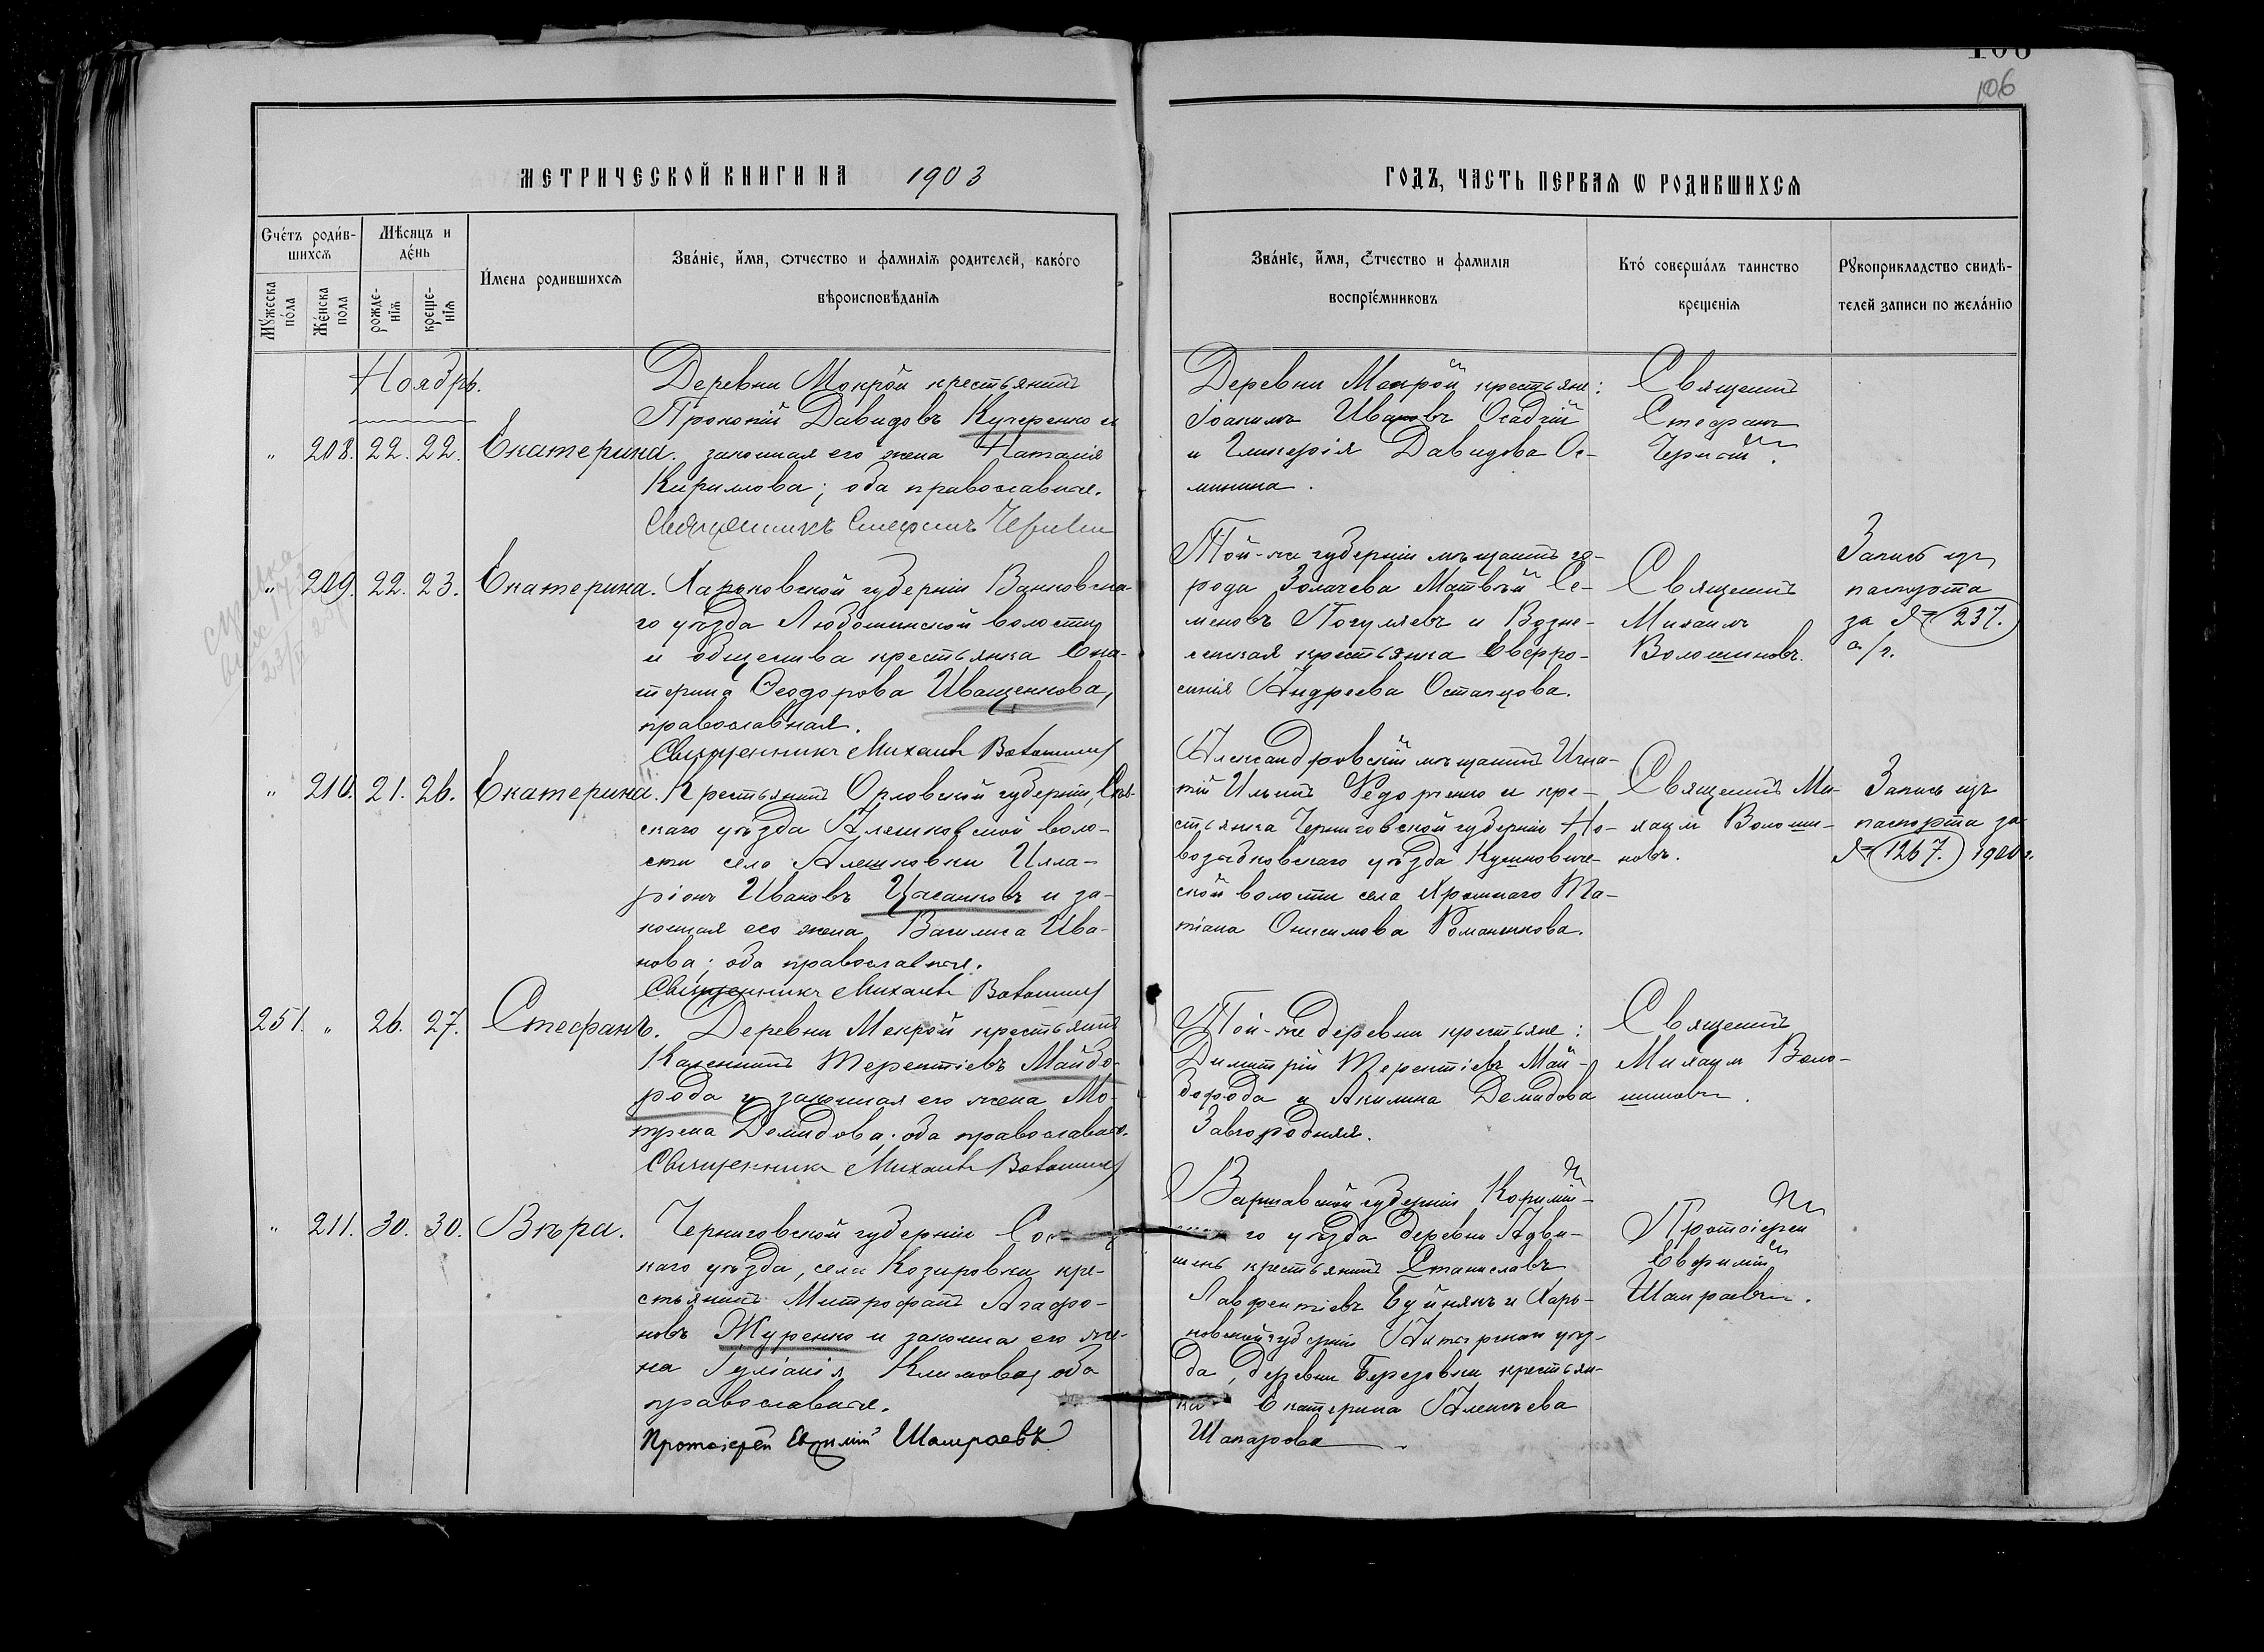 106
106
МЕТРИЧЕСКОЙ КНИГИ НА 1903
ГОДЪ, ЧАСТЬ ПЕРВАѦ Ѡ РОДИВШИХСѦ
Счéтъ родѝв-
шихсѧ
Мꙋ́жеска пóла
Жéнска пола
Мѣсяцъ и
дéнь
рожде-
нїѧ
креще-
нїѧ
И́мена родившихсѧ
Звáнїе, и́мя, отчество и фамилїѧ родителей, какóго
вѣроисповѣ́данїѧ
Звáнїе, и́мя, óтчество и фамилїя
воспрїéмниковъ
Ктó совершáлъ таинство
крещенїѧ
Рꙋкоприкладство свидѣ-
телей записи по желáнїю
Ноябрь.
„ 208. 22. 22. Екатерина.
Деревни Мокрой крестьянинъ
Прокопій Давидовъ Кучеренко и
законная его жена Наталія
Кириллова; оба православные.
Священникъ Стефанъ
Деревни Мокрой крестьяне:
Іоакимъ Ивановъ Осадчій
и Гликерія Давидова Ос-
минина.
Священникъ
Стефанъ
„ 209. 22. 23. Екатерина.
Харьковской губерніи Валковска-
го уѣзда Люботинской волости
и общества крестьянка Ека-
терина Ѳеодорова Иващенкова,
православная.
Священникъ Михаилъ Волошиновъ
Той-же губерніи мѣщанинъ го-
рода Золочева Матвѣй Се-
меновъ и Возне-
сенская крестьянка Евфро-
синія Андреева Остапцова.
Священникъ
Михаилъ
Волошиновъ.
Запись изъ
паспорта
за № 237.
с/г.
„ 210. 21. 26. Екатерина.
Крестьянинъ Орловской губерніи, Сѣв-
скаго уѣзда Алешковской воло-
сти села Алешковки Илла-
ріонъ Ивановъ Цыганковъ и за-
конная его жена Василиса Ива-
нова; оба православные.
Священникъ Михаилъ Волошиновъ
Александровскій мѣщанинъ Игна-
тій Ильинъ Федорченко и кре-
стьянка Черниговской губерніи Но-
возыбковскаго уѣзда
ской волости села Та-
тіана Онисимова Романенкова.
Священникъ Ми-
хаилъ Волоши-
новъ.
Запись изъ
паспорта за
№ 1267. 1900 г.
251. „ 26. 27. Стефанъ.
Деревни Мокрой крестьянинъ
Каленикъ Терентіевъ Майбо-
рода и законная его жена Мо-
трена Демидова; оба православные.
Священникъ Михаилъ Волошиновъ
Той-же деревни крестьяне:
Димитрій Терентіевъ Май-
борода и Акилина Демидова
Завгородняя.
Священникъ
Михаилъ Воло-
шиновъ.
„ 211. 30. 30. Вѣра.
Черниговской губерніи
каго уѣзда, села Козировки кре-
стьянинъ Митрофанъ Агафо-
новъ Журенко и законная его же-
на Іуліанія Климова; оба
православные.
Протоіерей Евѳимій Шамраевъ
Варшавской губерніи
го уѣзда деревни
крестьянинъ Станиславъ
Лаврентіевъ и Харь-
ковской губерніи уѣз-
да, деревни Березовки крестьян-
ка Екатерина Алексѣева
Шапарова
Протоіерей
Евѳимій
Шамраевъ.